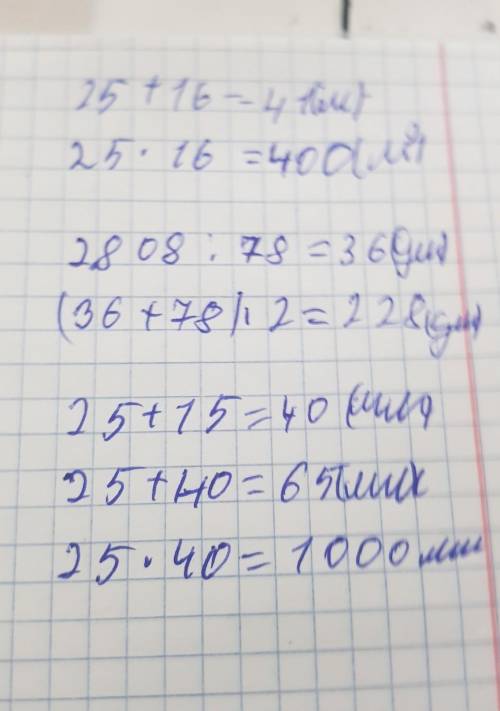 25 + 16 = 41(м)
25 · 16 = 400(м²)
2808 : 78 = 36(дм)
(36 + 78) · 2 = 228(дм)
25 + 15 = 40 (мм)
25 + 40 = 65(мм)
25 · 40 = 1000 мм